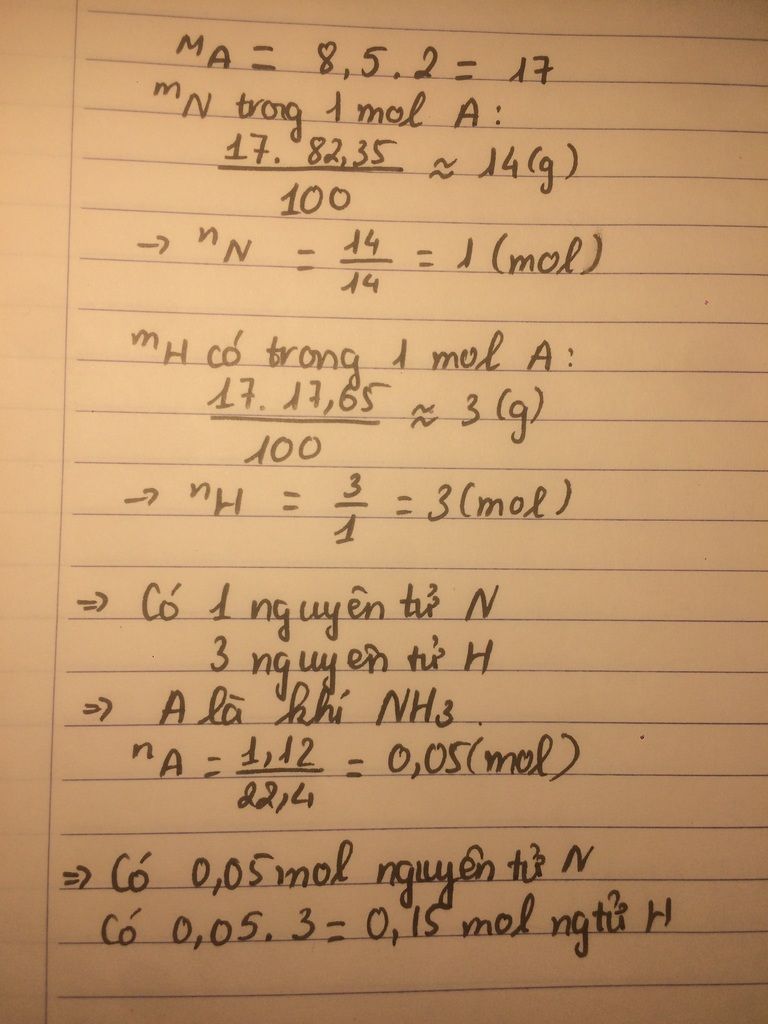 MA = 8,5.2 = 17
mN trong 1 mol A:
17. 82,35 / 100 ≈ 14(g)
→ nN = 14/14 = 1 (mol)
mH có trong 1 mol A:
17. 17,65 / 100 ≈ 3 (g)
→ nH = 3/1 = 3(mol)
=> Có 1 nguyên tử N
3 nguyên tử H
=> A là khí NH3.
nA = 1,12/22,4 = 0,05(mol)
=> Có 0,05mol nguyên tử N
Có 0,05. 3 = 0,15 mol ngtử H